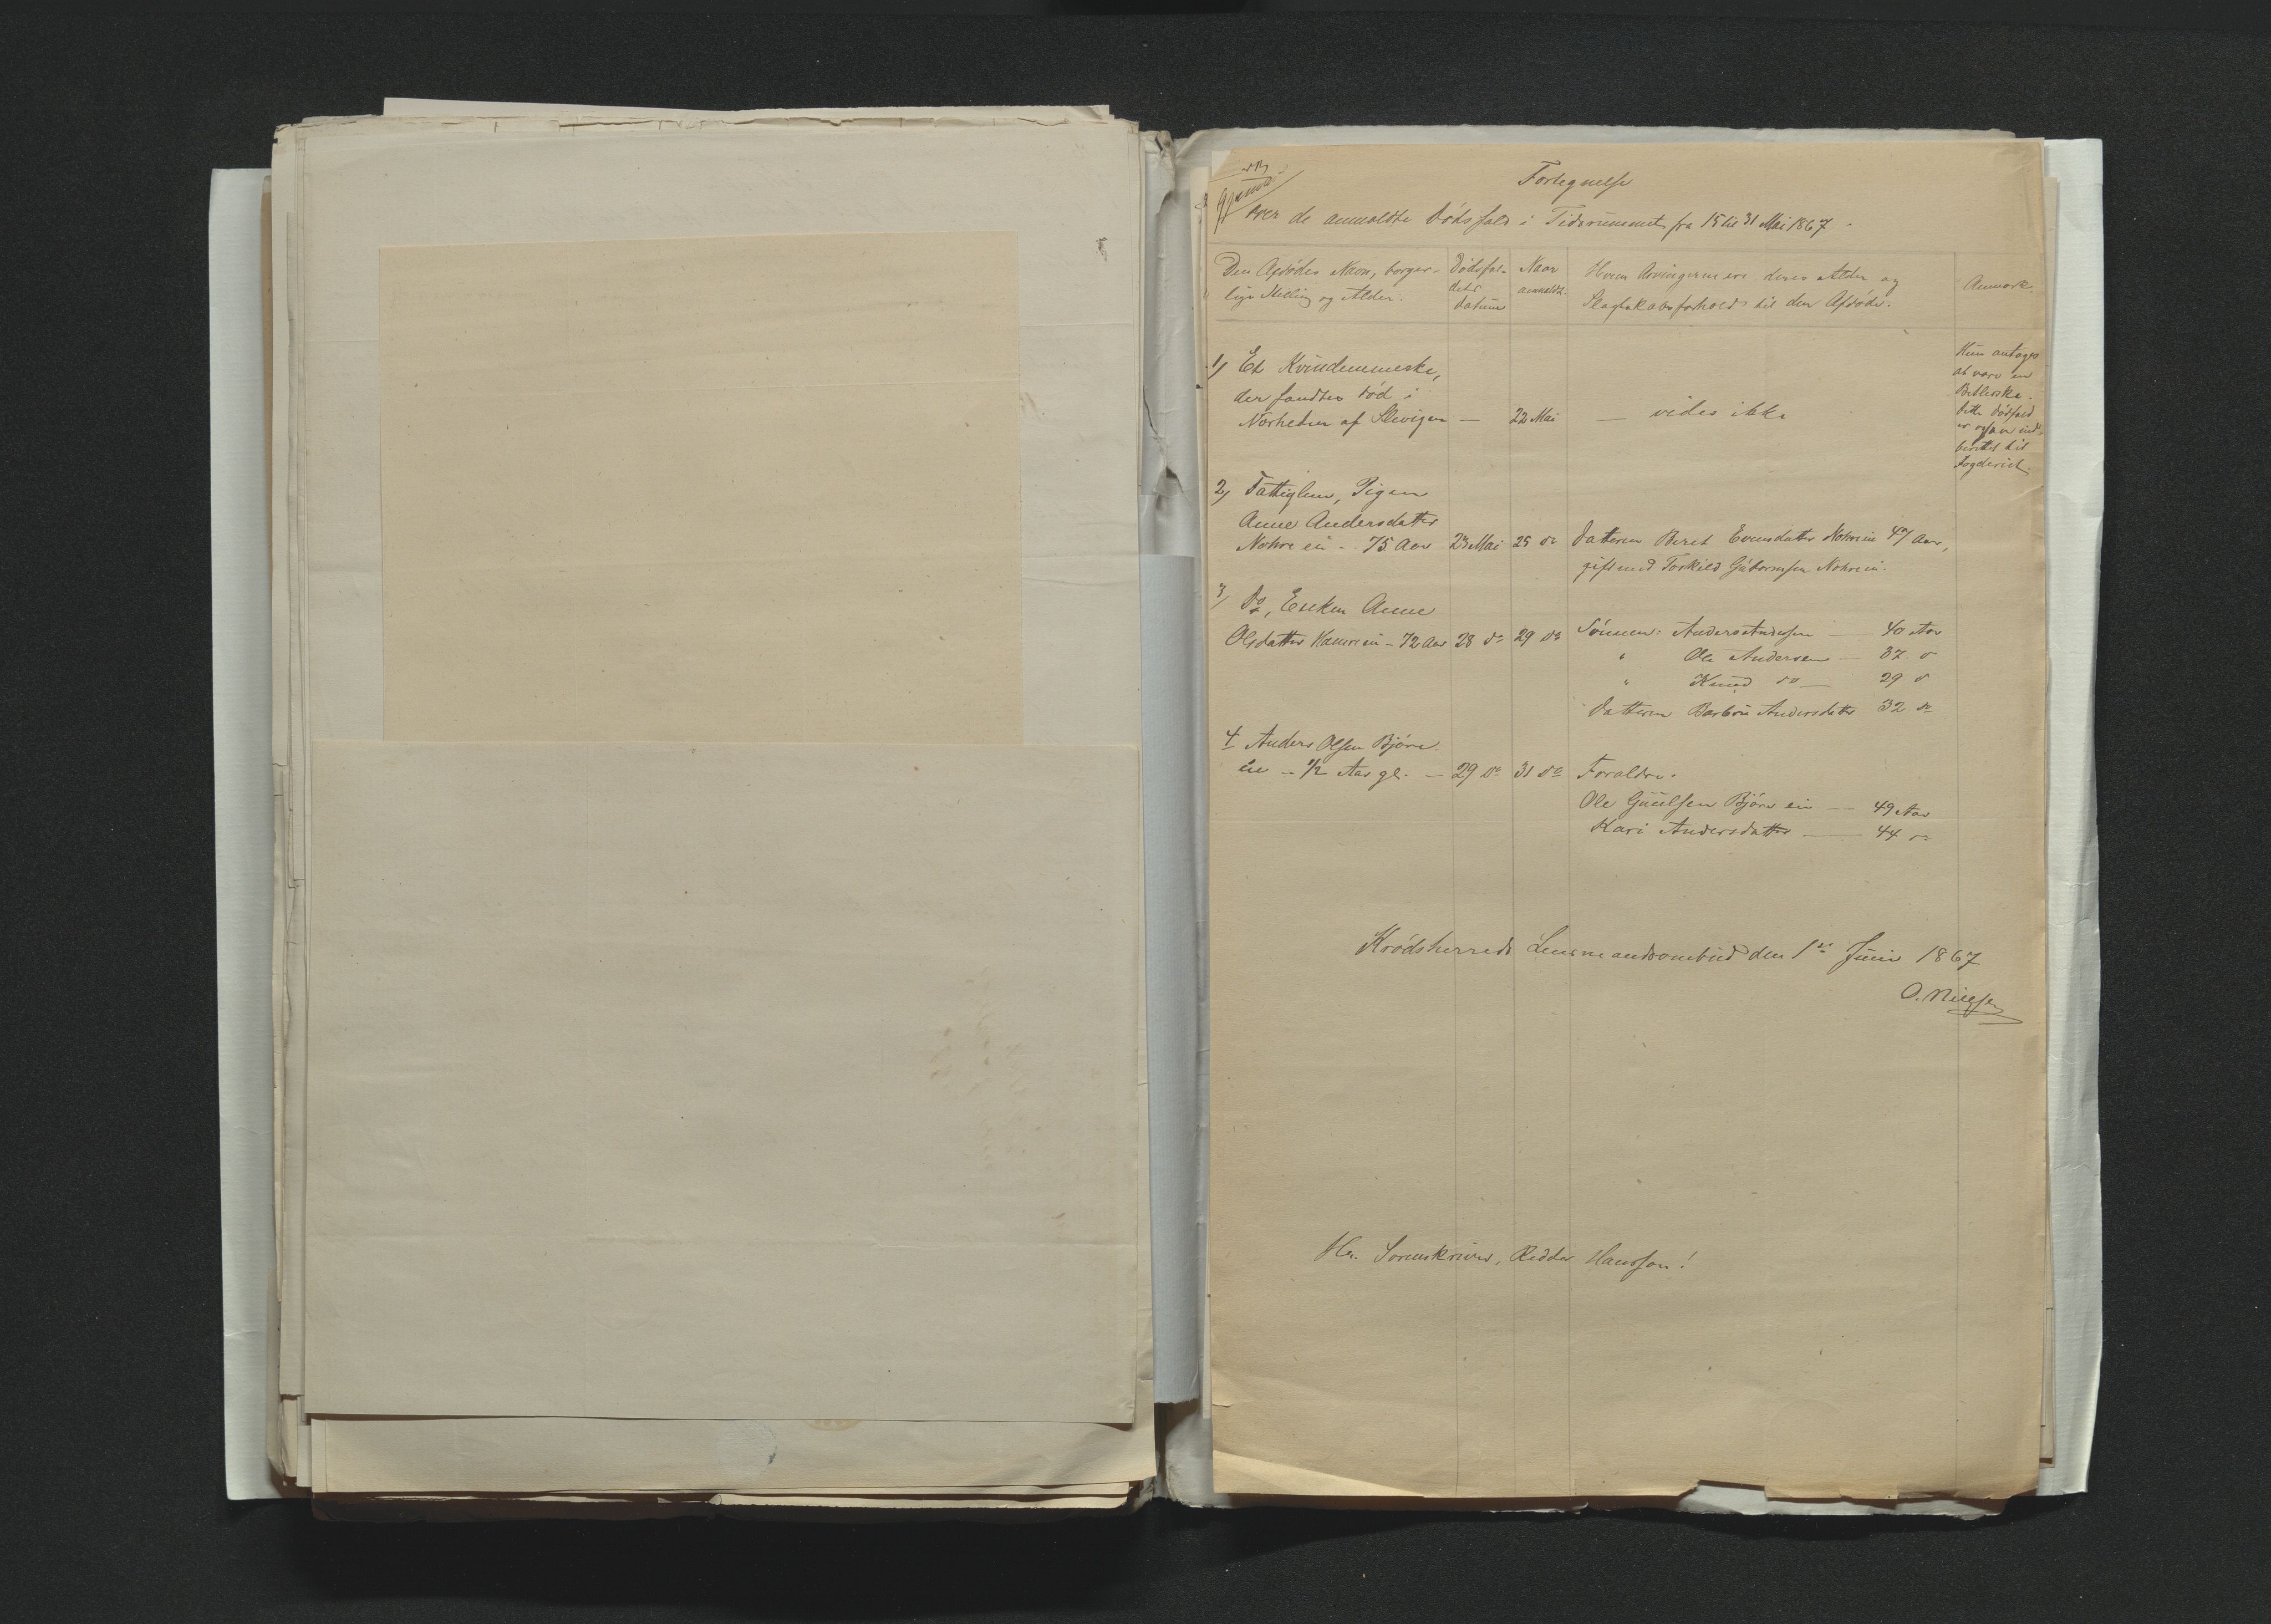 Fortegnelse
over de anmeldte Dødsfald i Tidsrummet fra 15 til 31 Mai 1867.
Den Afdødes Navn, borger-
lige Stilling og Alder.
Dødsfal-
dets
Datum
Naar
anmeldt.
Hvem Arvingerne ere deres Alder og
Slagtskabsforhold til den Afdøde.
Anmærk.
1) Et Kvindemenneske,
der fandtes død i
Nærheden af — 22 Mai — vides ikke
Hun antages
at være en
Betlerske.
Dette Dødsfald
er ogsaa ind-
berettet til
Fogderiet.
2) Fattiglem, Pigen
Anne Andersdatter
Nokre ei - 75 Aar 23 Mai 25 do Datteren Beret Evensdatter 47 Aar,
gift med Torkild Guttormsen
3) Do, Enken Anne
Olsdatter - 72 Aar 28 do 29 do Sønnen: Anders Andersen — 40 Aar
" Ole Andersen — 37 d
" Knud do — 29 d
Datteren Barbro Andersdatter 32 do
4 Anders Olsen Bjøre
ie - 1/2 Aar gl. — 29 do 31 do Forældre.
Ole Gulsen Bjøre ei — 49 Aar
Kari Andersdatter — 44 do
Krødsherreds Lensmandsombud den 1ste Juni 1867
O. Nilsen
Hr. Sorenskriver, Ridder Hansson!